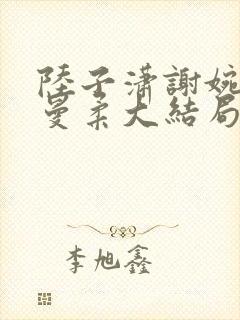 陸子瀟謝婉
曼柔大結局
李旭鑫